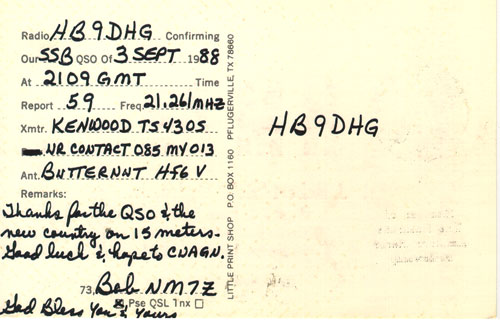 Radio HB9DHG Confirming
Our SSB QSO Of 3 SEPT 1988
At 2109 GMT Time
Report 59 Freq. 21.261MHZ
Xmtr. KENWOOD TS430S
UR CONTACT 085 MY 013
Ant. BUTTERNUT HF6V
Remarks:
Thanks for the QSO & the
new country on 15 meters.
Good luck & hope to CUAGN.
73, Bob NM7Z
Pse QSL Tnx
God Bless You & Yours
LITTLE PRINT SHOP P.O. BOX 1160 PFLUGERVILLE, TX 78660
HB9DHG